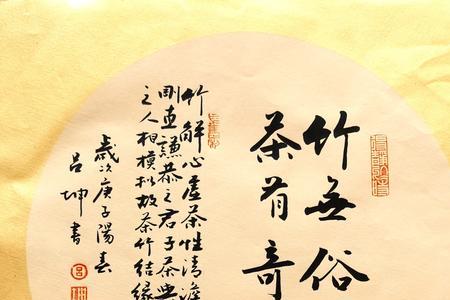 竹無俗
茶有奇
竹解心虛茶性清澹
剛直謙恭之君子茶與
之人相模拟故茶竹結緣
歲次庚子陽春
呂坤書